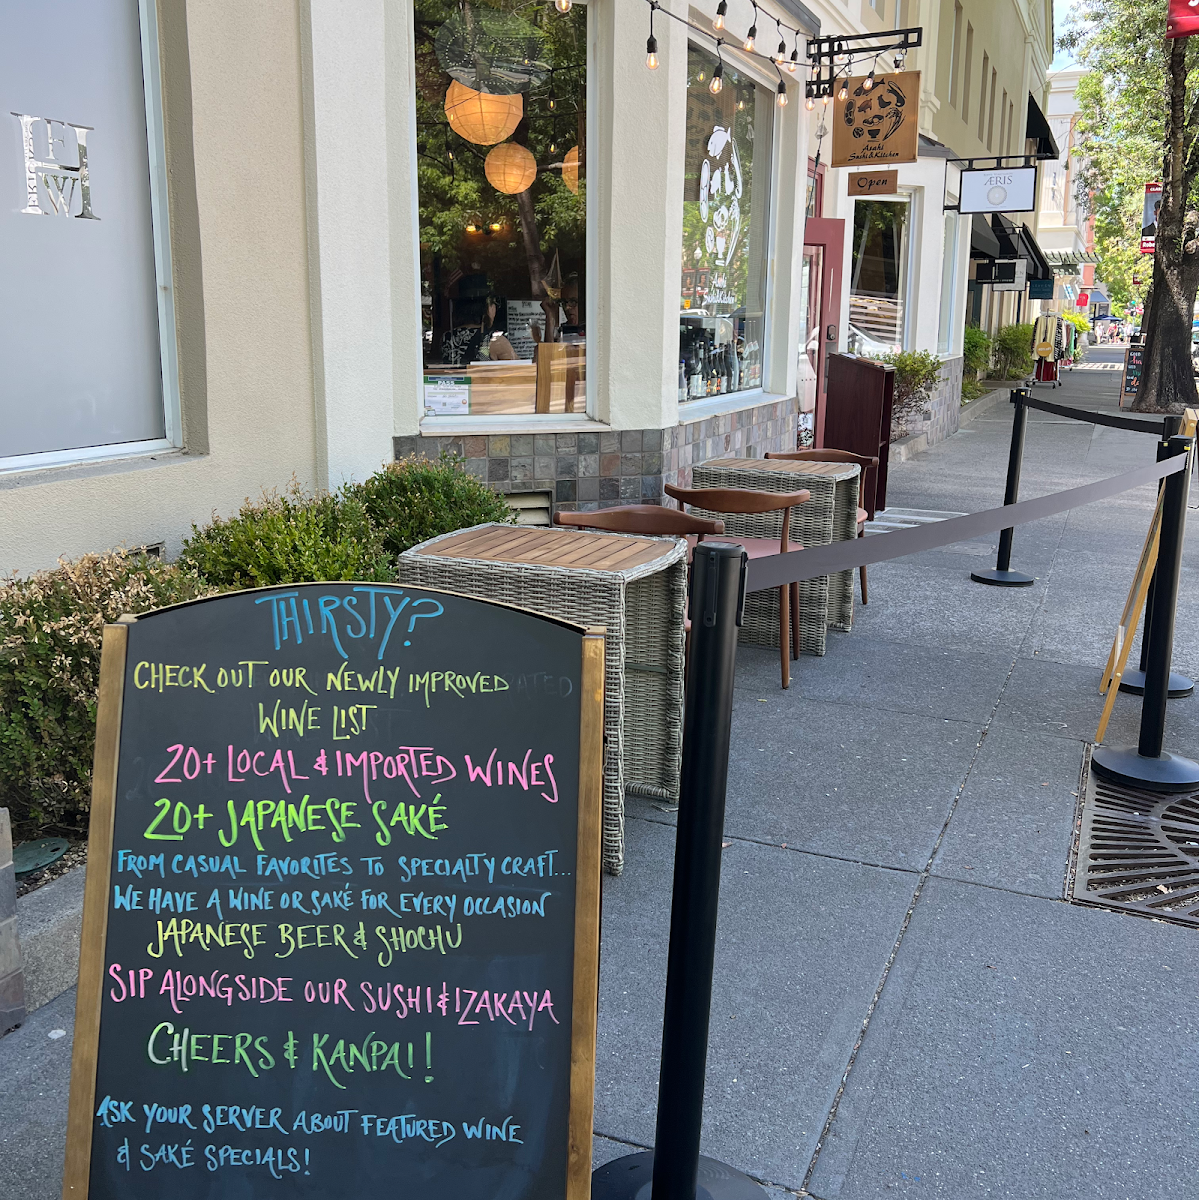 Asahi
Sushi & Kitchen
Open
ÆRIS
Asahi
PASS
THIRSTY?
CHECK OUT OUR NEWLY IMPROVED
WINE LIST
20+ LOCAL & IMPORTED WINES
20+ JAPANESE SAKÉ
FROM CASUAL FAVORITES TO SPECIALTY CRAFT...
WE HAVE A WINE OR SAKÉ FOR EVERY OCCASION
JAPANESE BEER & SHOCHU
SIP ALONGSIDE OUR SUSHI & IZAKAYA
CHEERS & KANPAI!
ASK YOUR SERVER ABOUT FEATURED WINE
& SAKÉ SPECIALS!